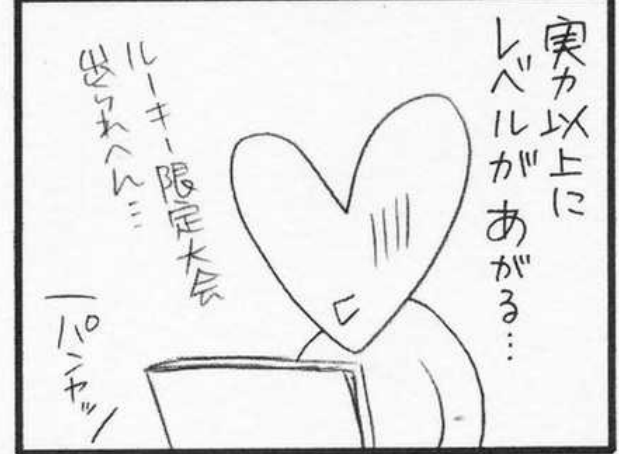 実力以上に
レベルがあがる…
ルーキー限定大会
出られへん…
パンヤッ